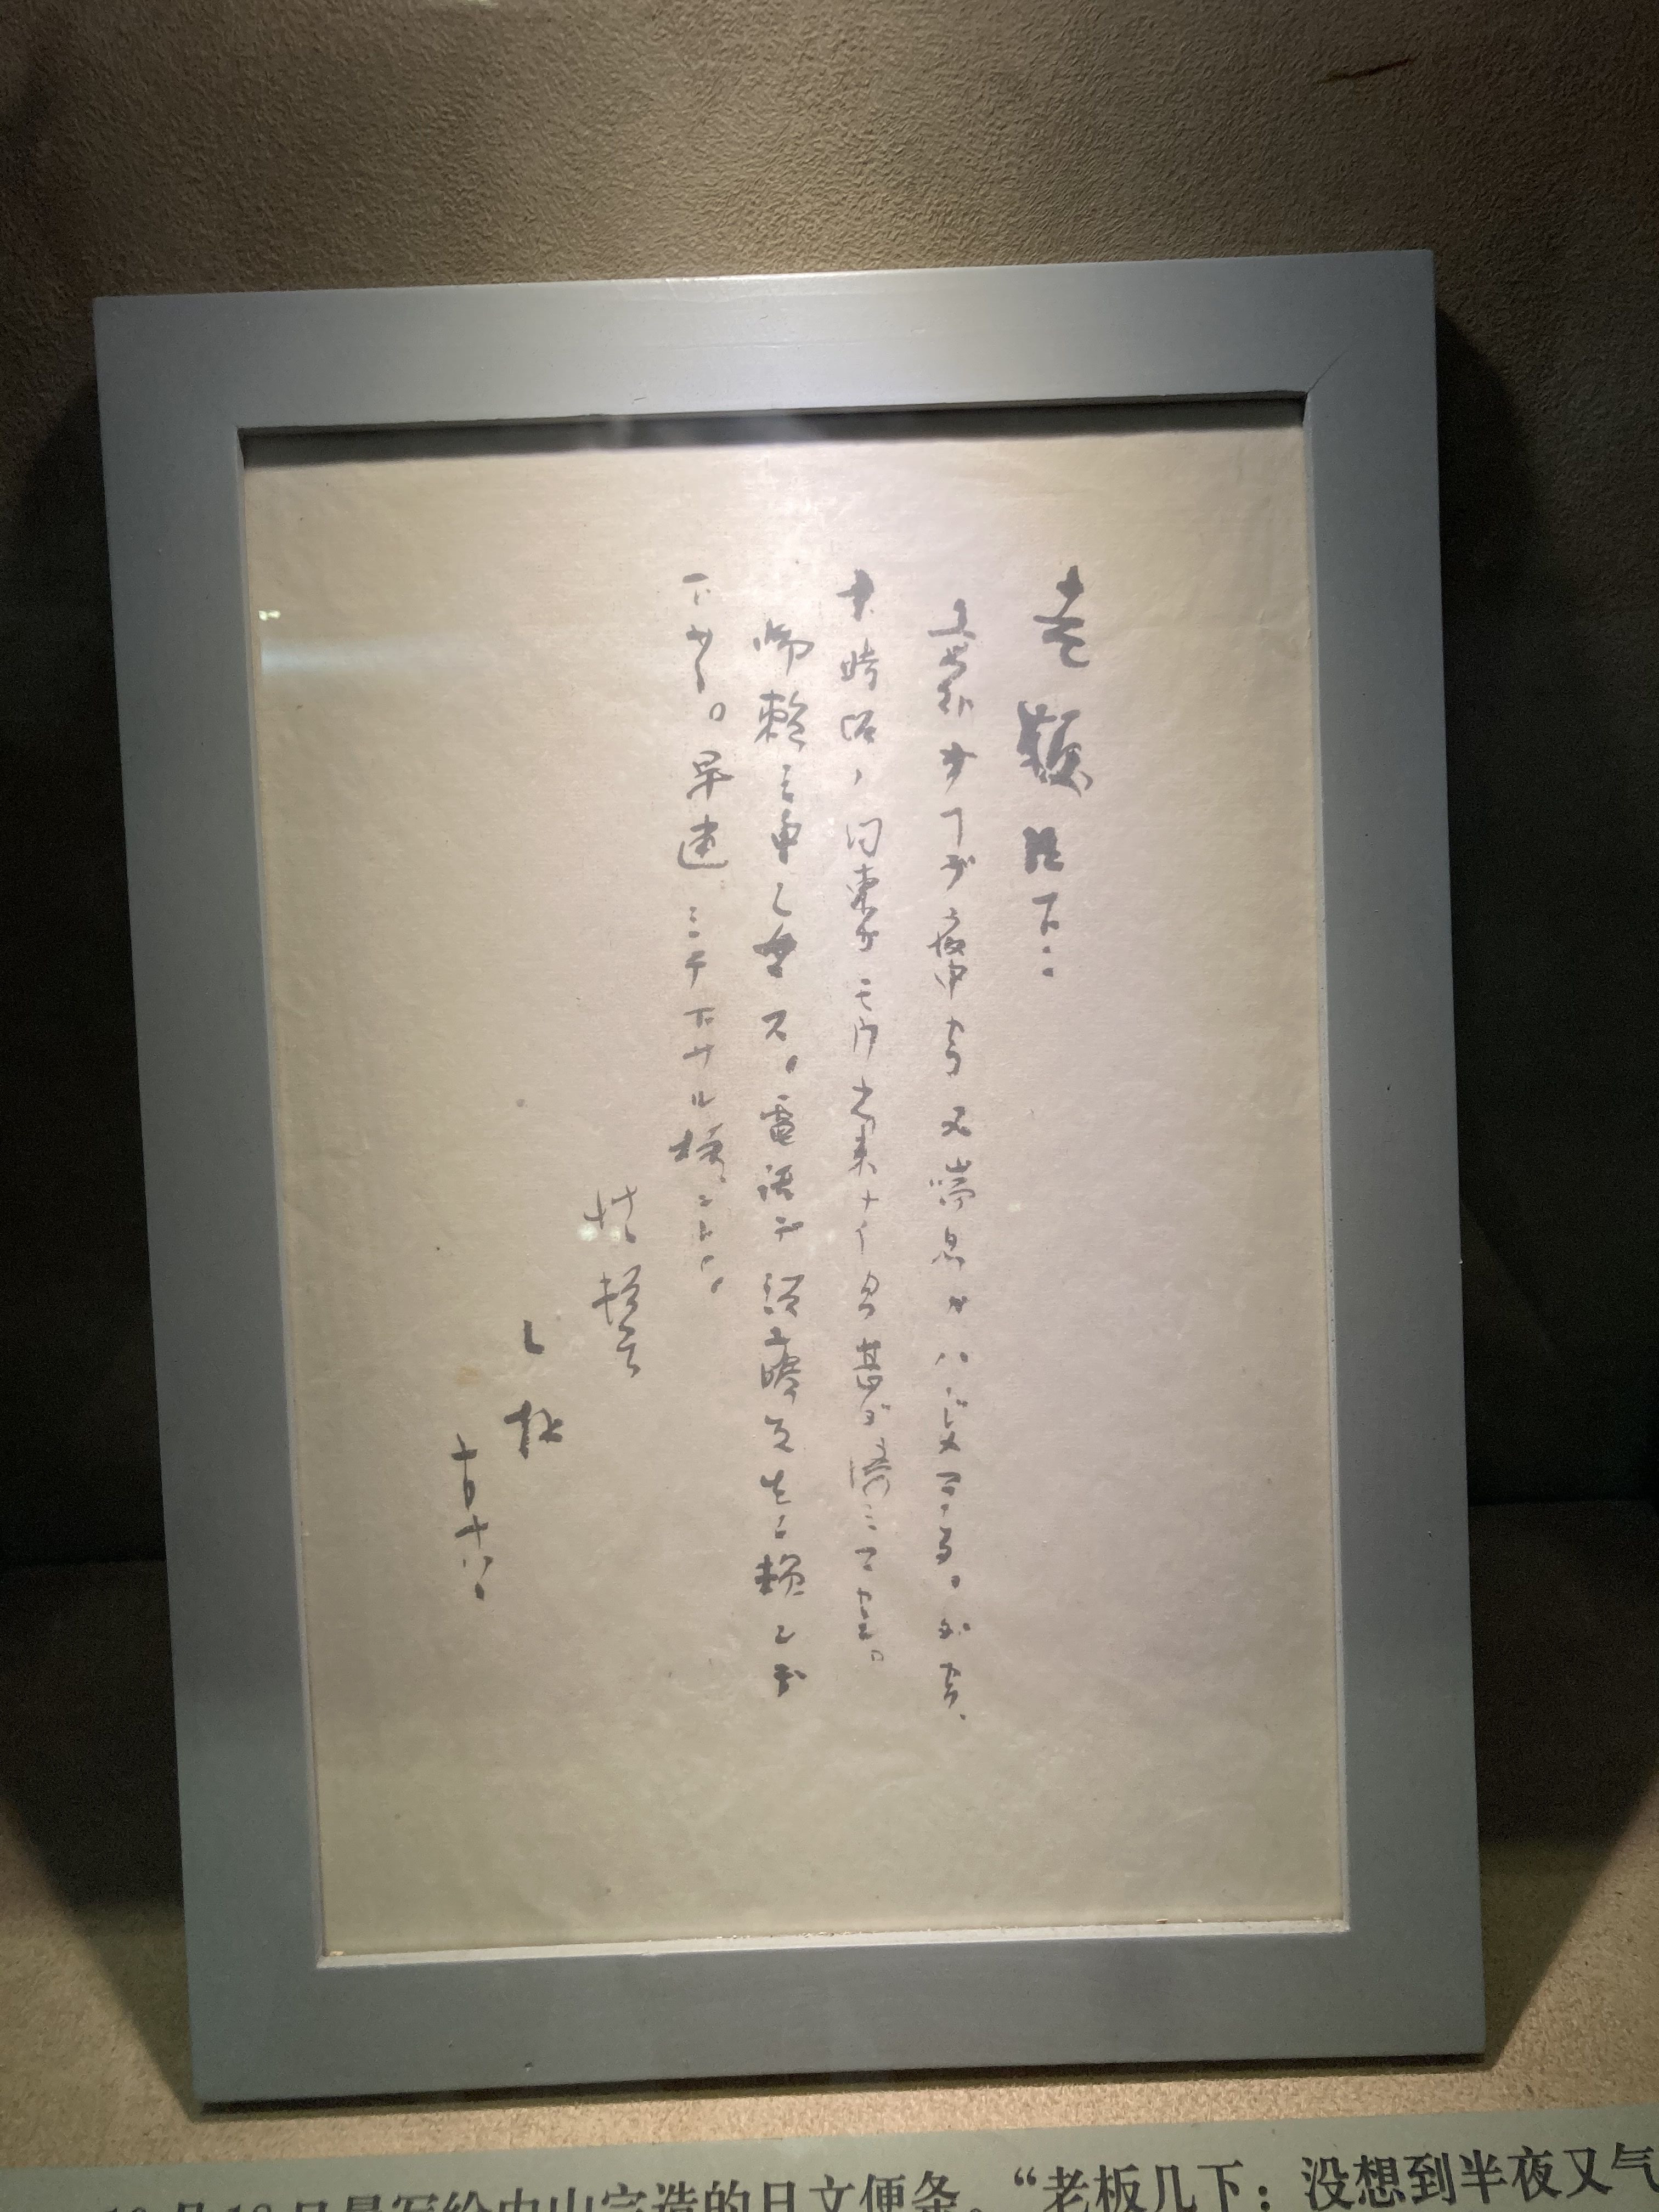 老版几下：
意外ナ事デ夜中カラ又喘息ガハジマッタ。ダカラ、
十時頃ノ約束ガモウ出来ナイカラ甚ダ済ミマセン。
御頼ミ申シマス。電話デ須藤先生ニ頼ンデ
下サイ。早速ミテ下サル様ニト。
草々頓首
L 拝
十月十八日
10月18日晨写给内山完造的日文便条。“老板几下：没想到半夜又气